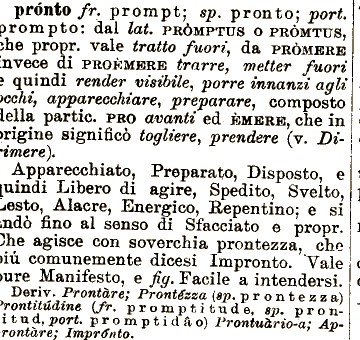 prónto fr. prompt; sp. pronto; port.
prompto: dal lat. PRÒMPTUS O PRÒMTUS,
che propr. vale tratto fuori, da PRÒMERE
invece di PROÈMERE trarre, metter fuori
e quindi render visibile, porre innanzi agli
occhi, apparecchiare, preparare, composto
della partic. PRO avanti ed ÈMERE, che in
origine significò togliere, prendere (v. Di-
rimere).
Apparecchiato, Preparato, Disposto, e
quindi Libero di agire, Spedito, Svelto,
Lesto, Alacre, Energico, Repentino; e si
andò fino al senso di Sfacciato e propr.
Che agisce con soverchia prontezza, che
più comunemente dicesi Impronto. Vale
pure Manifesto, e fig. Facile a intendersi.
Deriv. Prontàre; Prontézza (sp. prontezza)
Prontitúdine (fr. promptitude, sp. pron-
titud, port. promptidâo) Prontuàrio-a; Ap-
prontàre; Imprónto.